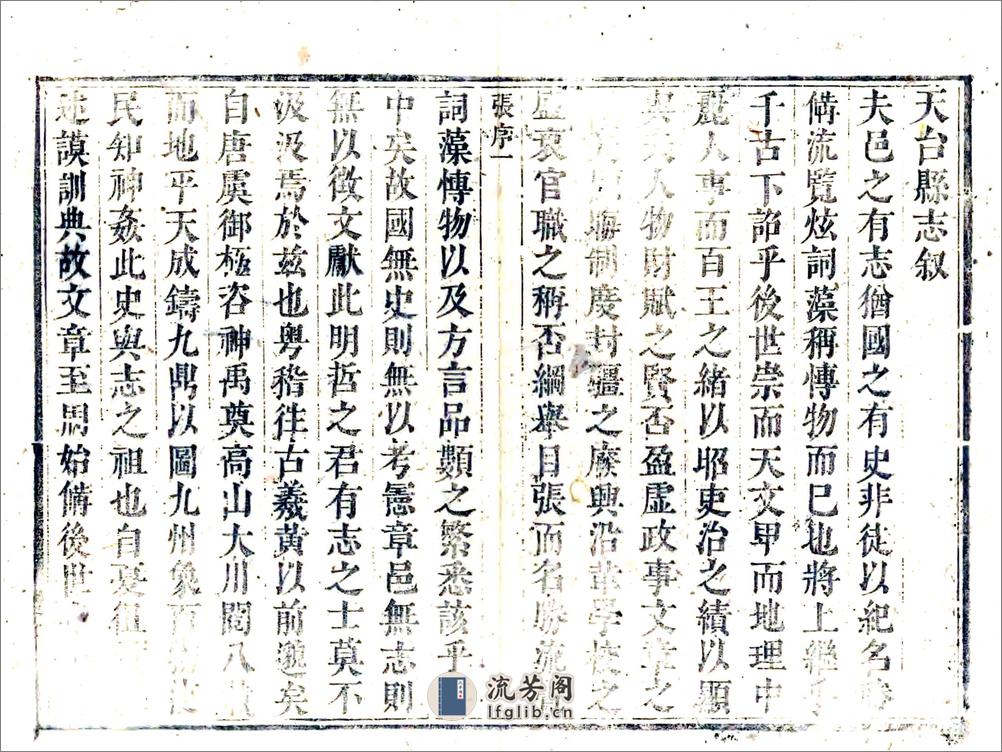 天台縣志叙
夫邑之有志猶國之有史非徒以紀名
備流覽炫詞藻稱愽物而巳也將上繼乎
千古下詔乎後世崇而天文卑而地理中
麗人事而百王之緒以昭吏治之績以顯
人物財賦之賢否盈虛政事文章之
制度封疆之廢興沿革學校之
盛衰官職之稱否綱舉目張而名勝流
張序一
詞藻愽物以及方言品類之繁悉該乎
中矣故國無史則無以考憲章邑無志則
無以徵文獻此明哲之君有志之士莫不
汲汲焉於兹也粤稽往古羲黃以前邈矣
自唐虞御極咨神禹奠高山大川閱八
而地平天成鑄九鼎以圖九州象百物使
民知神姦此史與志之祖也自夏徂
述謨訓典故文章至周始備後世
流芳阁
lfglib.cn